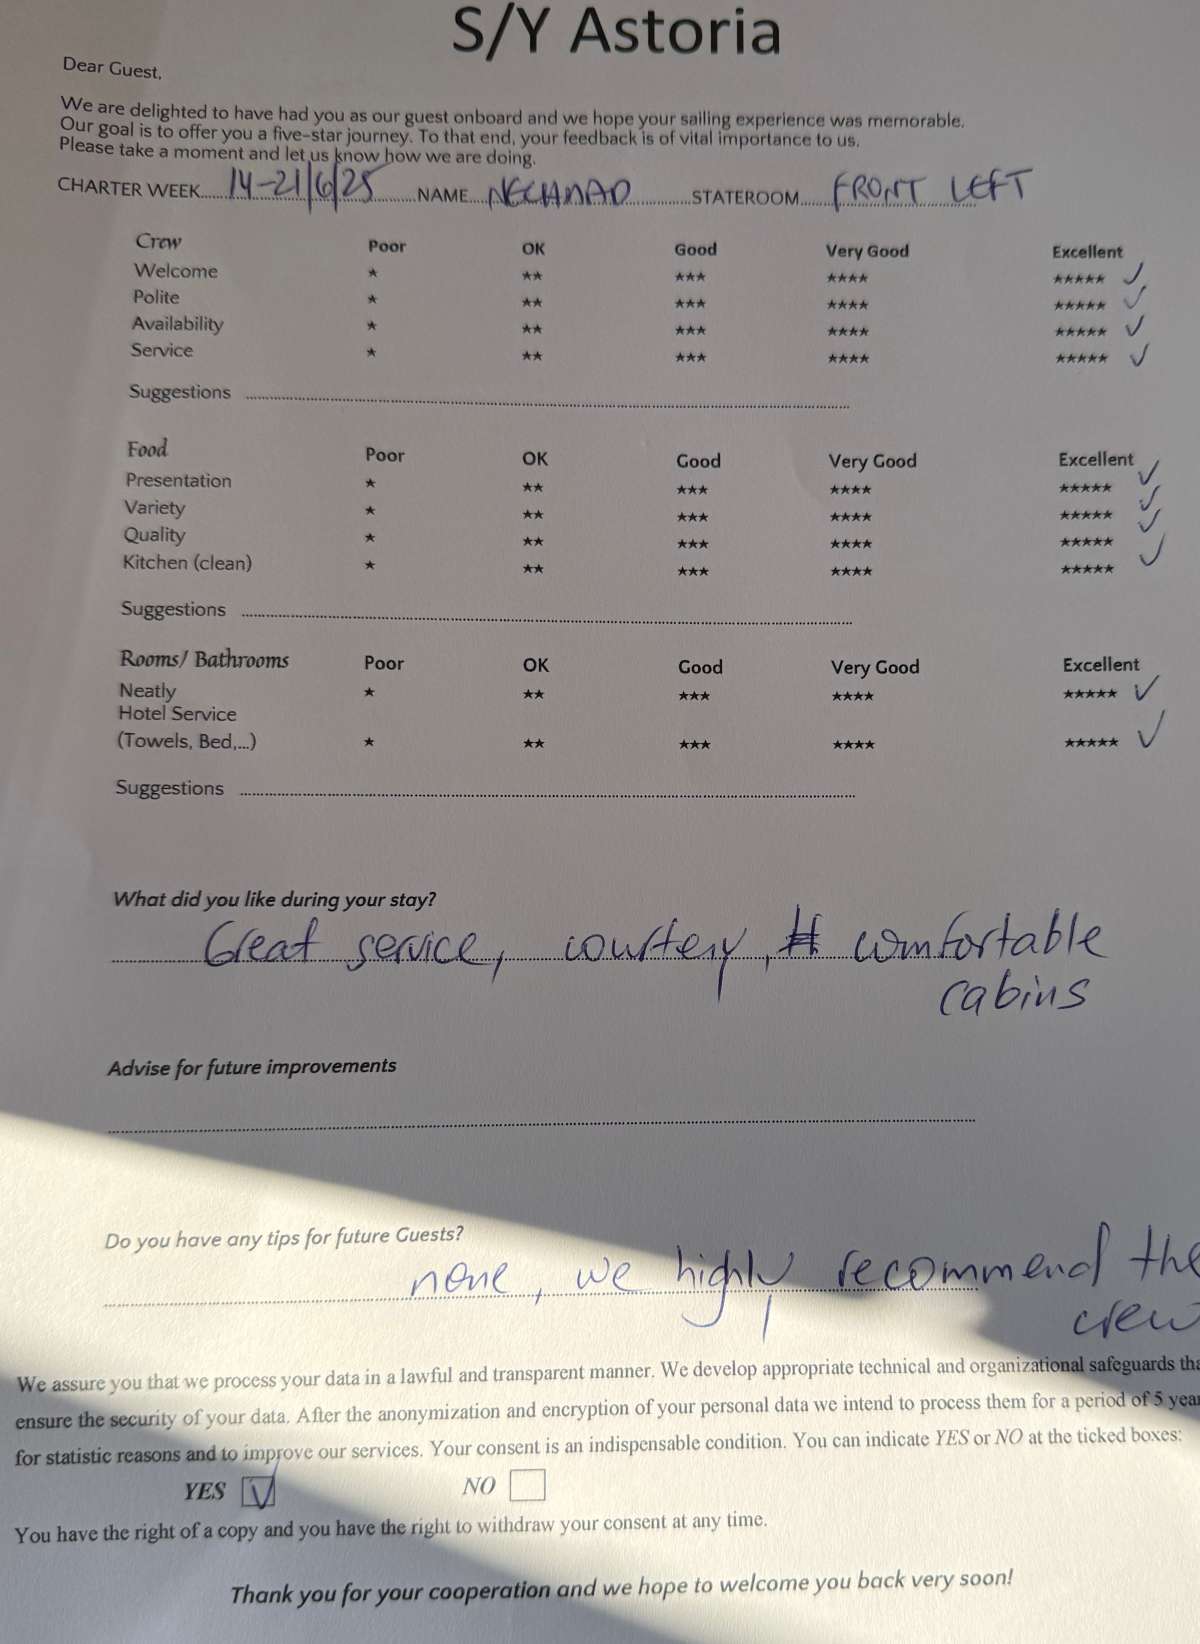 S/Y Astoria
Dear Guest,
We are delighted to have had you as our guest onboard and we hope your sailing experience was memorable.
Our goal is to offer you a five-star journey. To that end, your feedback is of vital importance to us.
Please take a moment and let us know how we are doing.
CHARTER WEEK......14-21/6/25......NAME....NECHMAD...............STATEROOM.......FRONT LEFT
Crew Poor OK Good Very Good Excellent
Welcome ★ ★★ ★★★ ★★★★ ★★★★★ ✓
Polite ★ ★★ ★★★ ★★★★ ★★★★★ ✓
Availability ★ ★★ ★★★ ★★★★ ★★★★★ ✓
Service ★ ★★ ★★★ ★★★★ ★★★★★ ✓
Suggestions
Food Poor OK Good Very Good Excellent
Presentation ★ ★★ ★★★ ★★★★ ★★★★★ ✓
Variety ★ ★★ ★★★ ★★★★ ★★★★★ ✓
Quality ★ ★★ ★★★ ★★★★ ★★★★★ ✓
Kitchen (clean) ★ ★★ ★★★ ★★★★ ★★★★★ ✓
Suggestions
Rooms/ Bathrooms Poor OK Good Very Good Excellent
Neatly ★ ★★ ★★★ ★★★★ ★★★★★ ✓
Hotel Service
(Towels, Bed,...) ★ ★★ ★★★ ★★★★ ★★★★★ ✓
Suggestions
What did you like during your stay?
Great service, courtesy, comfortable
cabins
Advise for future improvements
Do you have any tips for future Guests?
none, we highly recommend the
crew
We assure you that we process your data in a lawful and transparent manner. We develop appropriate technical and organizational safeguards tha
ensure the security of your data. After the anonymization and encryption of your personal data we intend to process them for a period of 5 year
for statistic reasons and to improve our services. Your consent is an indispensable condition. You can indicate YES or NO at the ticked boxes:
YES ✓ NO
You have the right of a copy and you have the right to withdraw your consent at any time.
Thank you for your cooperation and we hope to welcome you back very soon!